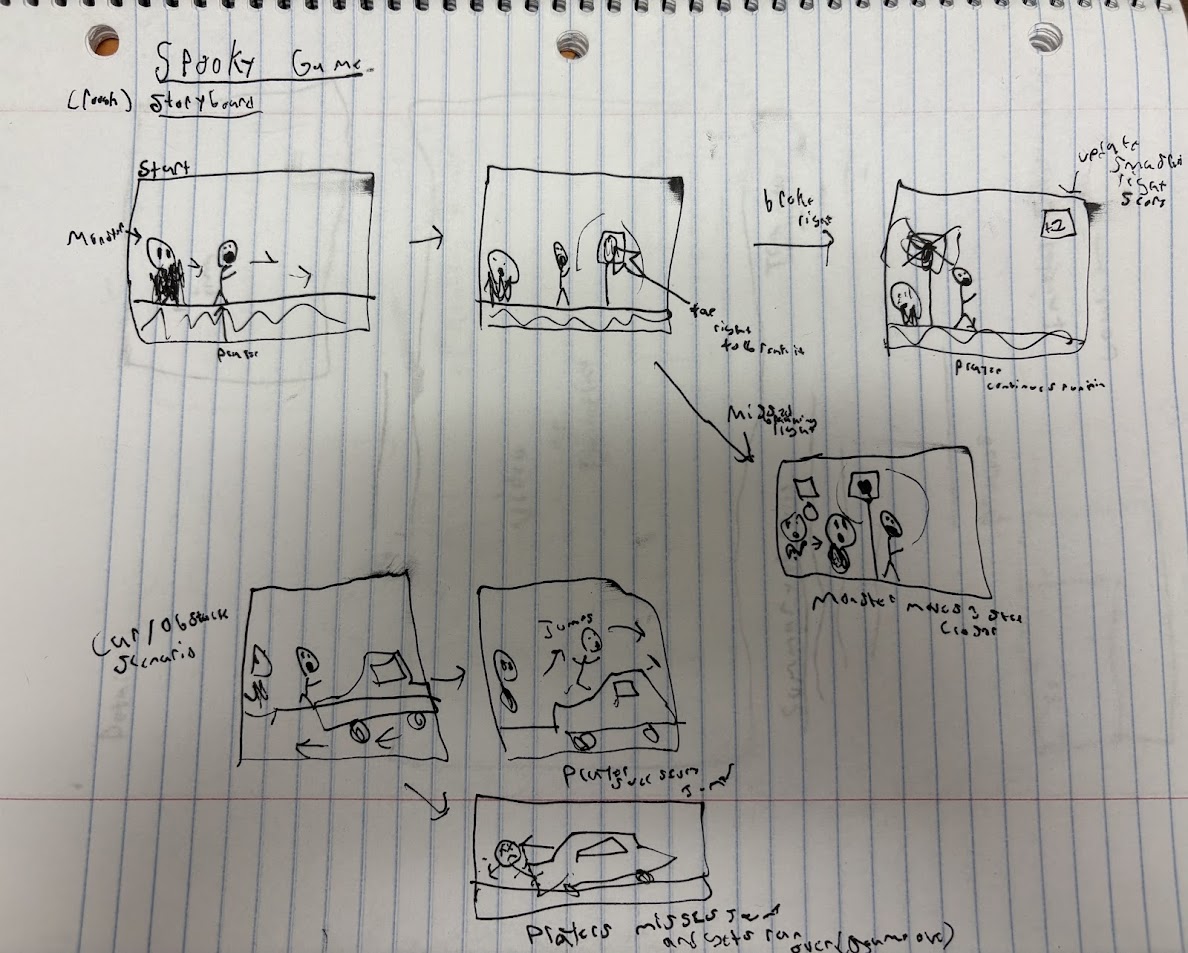 Spooky Game
(rough) Storyboard
Start
Monster
player
tap
light
to break it
broke
light
update
smashed
light
score
+2
player
continues runnin
Missed
light
Monster moves 3 steps
closer
Car/Obstacle
scenario
Jumps
Player
successful
jump
Players misses jump
and gets run
over (game over)